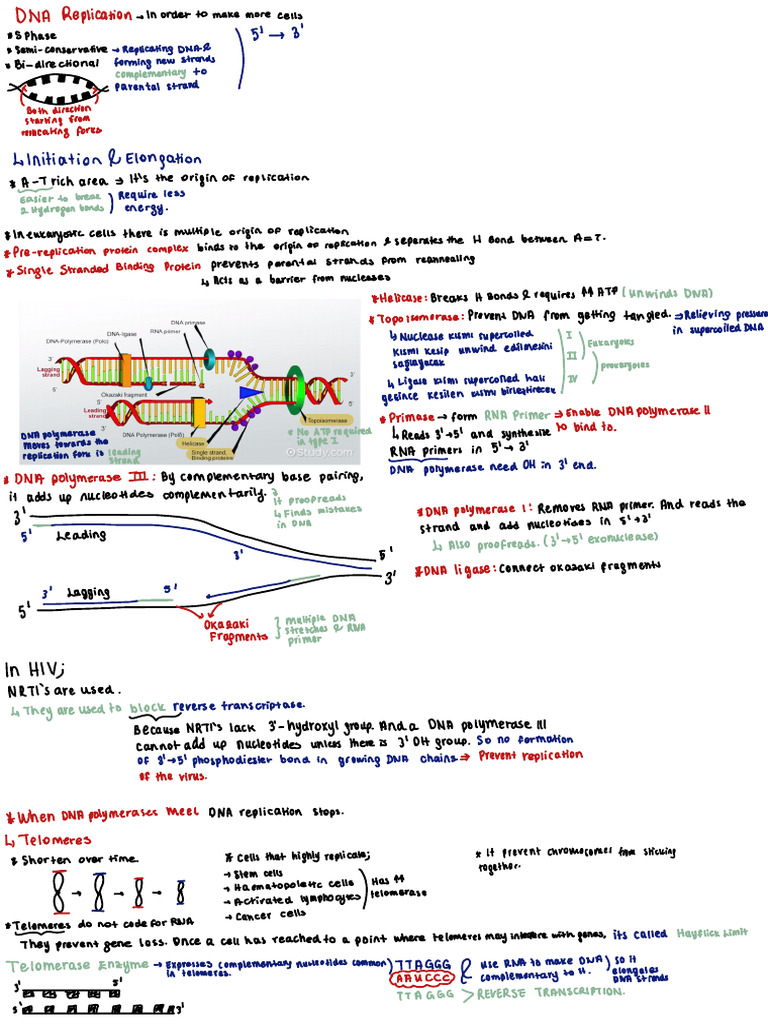 DNA Replication → In order to make more cells
* S Phase
* Semi-conservative → Replicating DNA & forming new strands complementary to parental strand
5' → 3'
* Bi-directional
Both direction
starting from
replicating forks
↳ Initiation & Elongation
* A-T rich area → It's the origin of replication
Easier to break
2 Hydrogen bonds
Require less
energy.
* In eukaryotic cells there is multiple origin of replication
* Pre-replication protein complex binds to the origin of replication & separates the H Bond between A=T.
* Single Stranded Binding Protein prevents parental strands from reannealing
↳ Acts as a barrier from nucleases
DNA primase
DNA-ligase
RNA primer
DNA-Polymerase (Polα)
3'
5'
Lagging
strand
Okazaki fragment
3'
5'
Leading
strand
3'
5'
DNA Polymerase (Polδ)
Helicase
Single strand,
Binding proteins
Topoisomerase
Study.com
DNA polymerase
moves towards the
replication fork is leading
strand
* No ATP required
in type I
* Helicase: Breaks H Bonds & requires ↑↑ ATP (unwinds DNA)
* Topoisomerase: Prevens DNA from getting tangled. ⇒ Relieving pressure
in supercoiled DNA
↳ Nuclease kısmı supercoiled
kısmı kesip unwind edilmesini
sağlayacak
↳ Ligase kısmı supercoiled hali
geçince kesilen kısmı birleştirecek
I
II
IV
Eukaryotes
prokaryotes
* Primase → form RNA Primer ⇒ Enable DNA polymerase III
to bind to.
↳ Reads 3'→5' and synthesize
RNA primers in 5' → 3'
DNA polymerase need OH in 3' end.
* DNA polymerase III: By complementary base pairing,
it adds up nucleotides complementarily.
It proofreads
↳ Finds mistakes
in DNA
3'
5'
Leading
3'
5'
3'
3'
Lagging
5'
5'
Okazaki
Fragments
multiple DNA
stretches & RNA
primer
* DNA polymerase I: Removes RNA primer. And reads the
strand and add nucleotides in 5'→3'
↳ Also proofreads. (3'→5' exonuclease)
* DNA ligase: Connect okazaki fragments
In HIV;
NRTI's are used.
↳ They are used to block reverse transcriptase.
Because NRTI's lack 3'-hydroxyl group. And a DNA polymerase III
cannot add up nucleotides unless there is 3' OH group. So no formation
of 3'→5' phosphodiester bond in growing DNA chains ⇒ Prevent replication
of the virus.
* When DNA polymerases meet DNA replication stops.
↳ Telomeres
* Shorten over time
* Cells that highly replicate;
→ Stem cells
→ Haematopoietic cells
→ Activated lymphocytes
→ Cancer cells
Has ↑↑
telomerase
* It prevent chromosomes from sticking
together.
* Telomeres do not code for RNA
They prevent gene loss. Once a cell has reached to a point where telomeres may interfere with genes, its called Hayflick Limit
Telomerase Enzyme → Expresses complementary nucleotides common
in telomeres.
TTAGGG
AAUCCC
TTAGGG > REVERSE TRANSCRIPTION.
& use RNA to make DNA
complementary to it.
so it
elongates
DNA strands
3'
5'
5'
3'